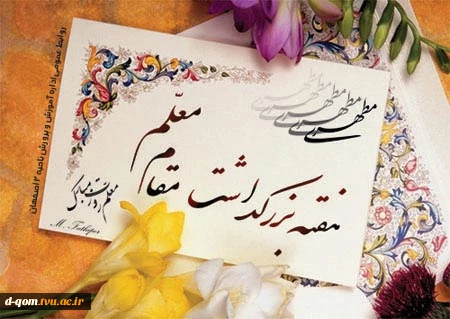 مطهری
مطهری
مطهری
مطهری
مطهری
هفته بزرگداشت مقام معلّم
معلم مبارک
M. Fathipor
روابط عمومی اداره آموزش و پرورش ناحیه ۲ اصفهان
d-qom.tvu.ac.ir